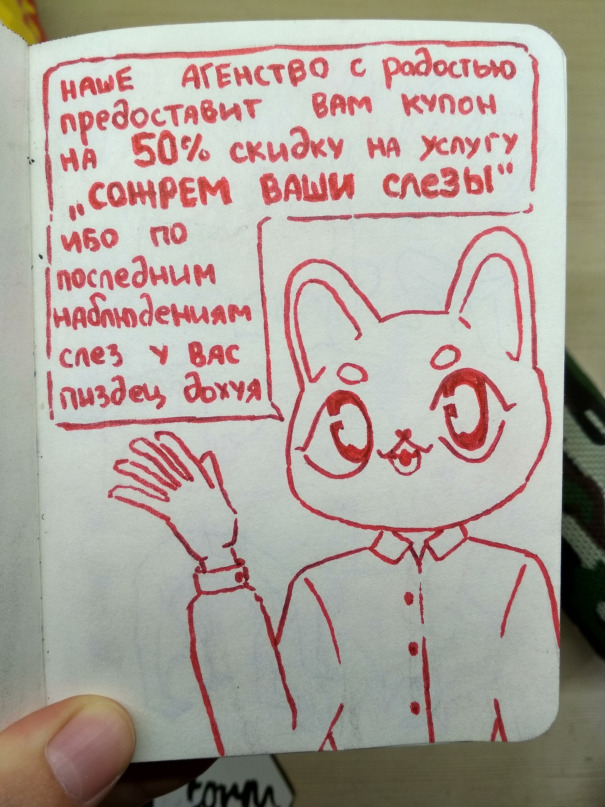 НАШЕ АГЕНСТВО С РАДОСТЬЮ
ПРЕДОСТАВИТ ВАМ КУПОН
НА 50% СКИДКУ НА УСЛУГУ
„СОЖРЕМ ВАШИ СЛЕЗЫ“
ИБО ПО
ПОСЛЕДНИМ
НАБЛЮДЕНИЯМ
СЛЕЗ У ВАС
ПИЗДЕЦ ДОХУЯ